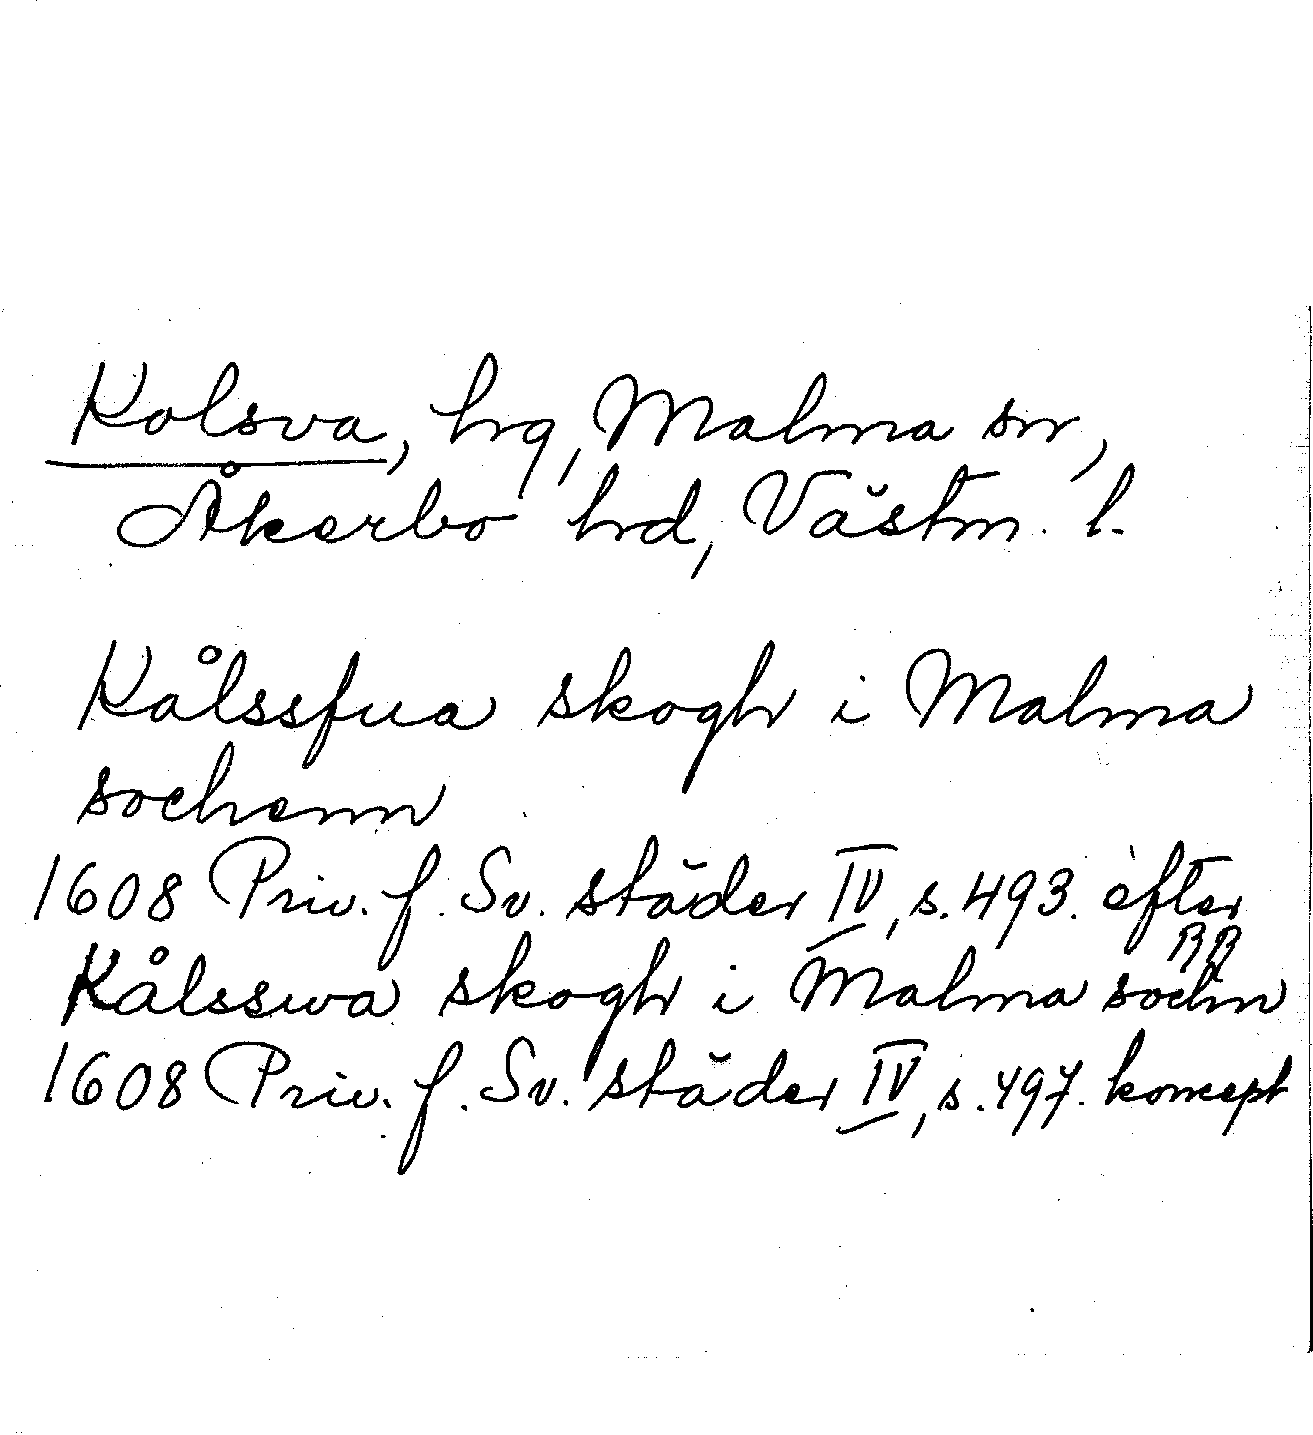 Kolsva, hrg, Malma sn,
Åkerbo hrd, Västm. l.
Kålssfua skogh i Malma
sochenn
1608 Priv. f. Sv. städer IV, s. 493. efter
RR
Kålsswa skogh i Malma sochn
1608 Priv. f. Sv. städer IV, s. 497. koncept